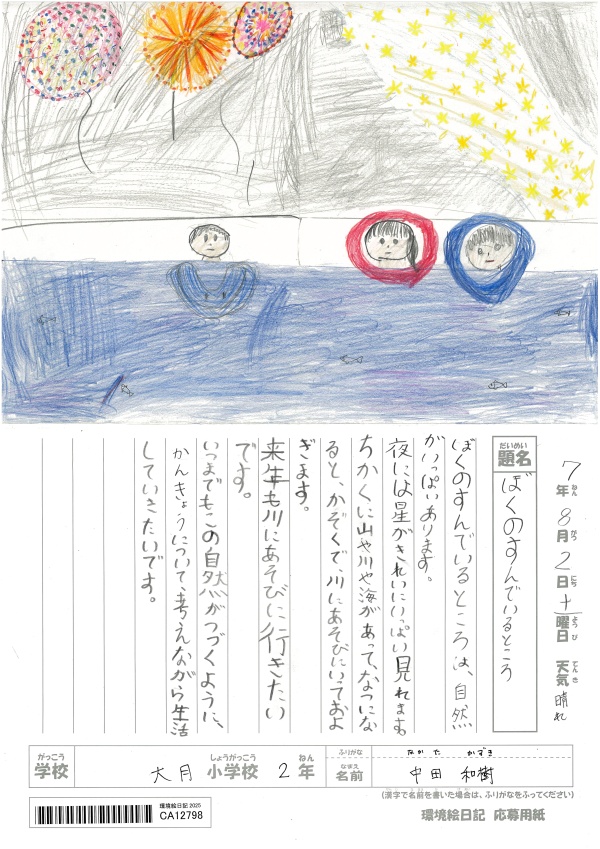 7年ねん 8月がつ 2日にち 土曜日ようび 天気てんき 晴れ
題名だいめい ぼくのすんでいるところ
ぼくのすんでいるところは、自然
がいっぱいあります。
夜には星がきれいにいっぱい見れます。
ちかくに山や川や海があって、なつにな
ると、かぞくで、川にあそびにいっておよ
ぎます。
来年も川にあそびに行きたい
です。
いつまでもこの自然がつづくように、
かんきょうについて考えながら生活
していきたいです。
がっこう しょうがっこう ねん ふりがな なかた かずき
学校 大月 小学校 2年 なまえ 名前 中田 和樹
(漢字で名前を書いた場合は、ふりがなをふってください)
環境絵日記 応募用紙
環境絵日記 2025
CA12798